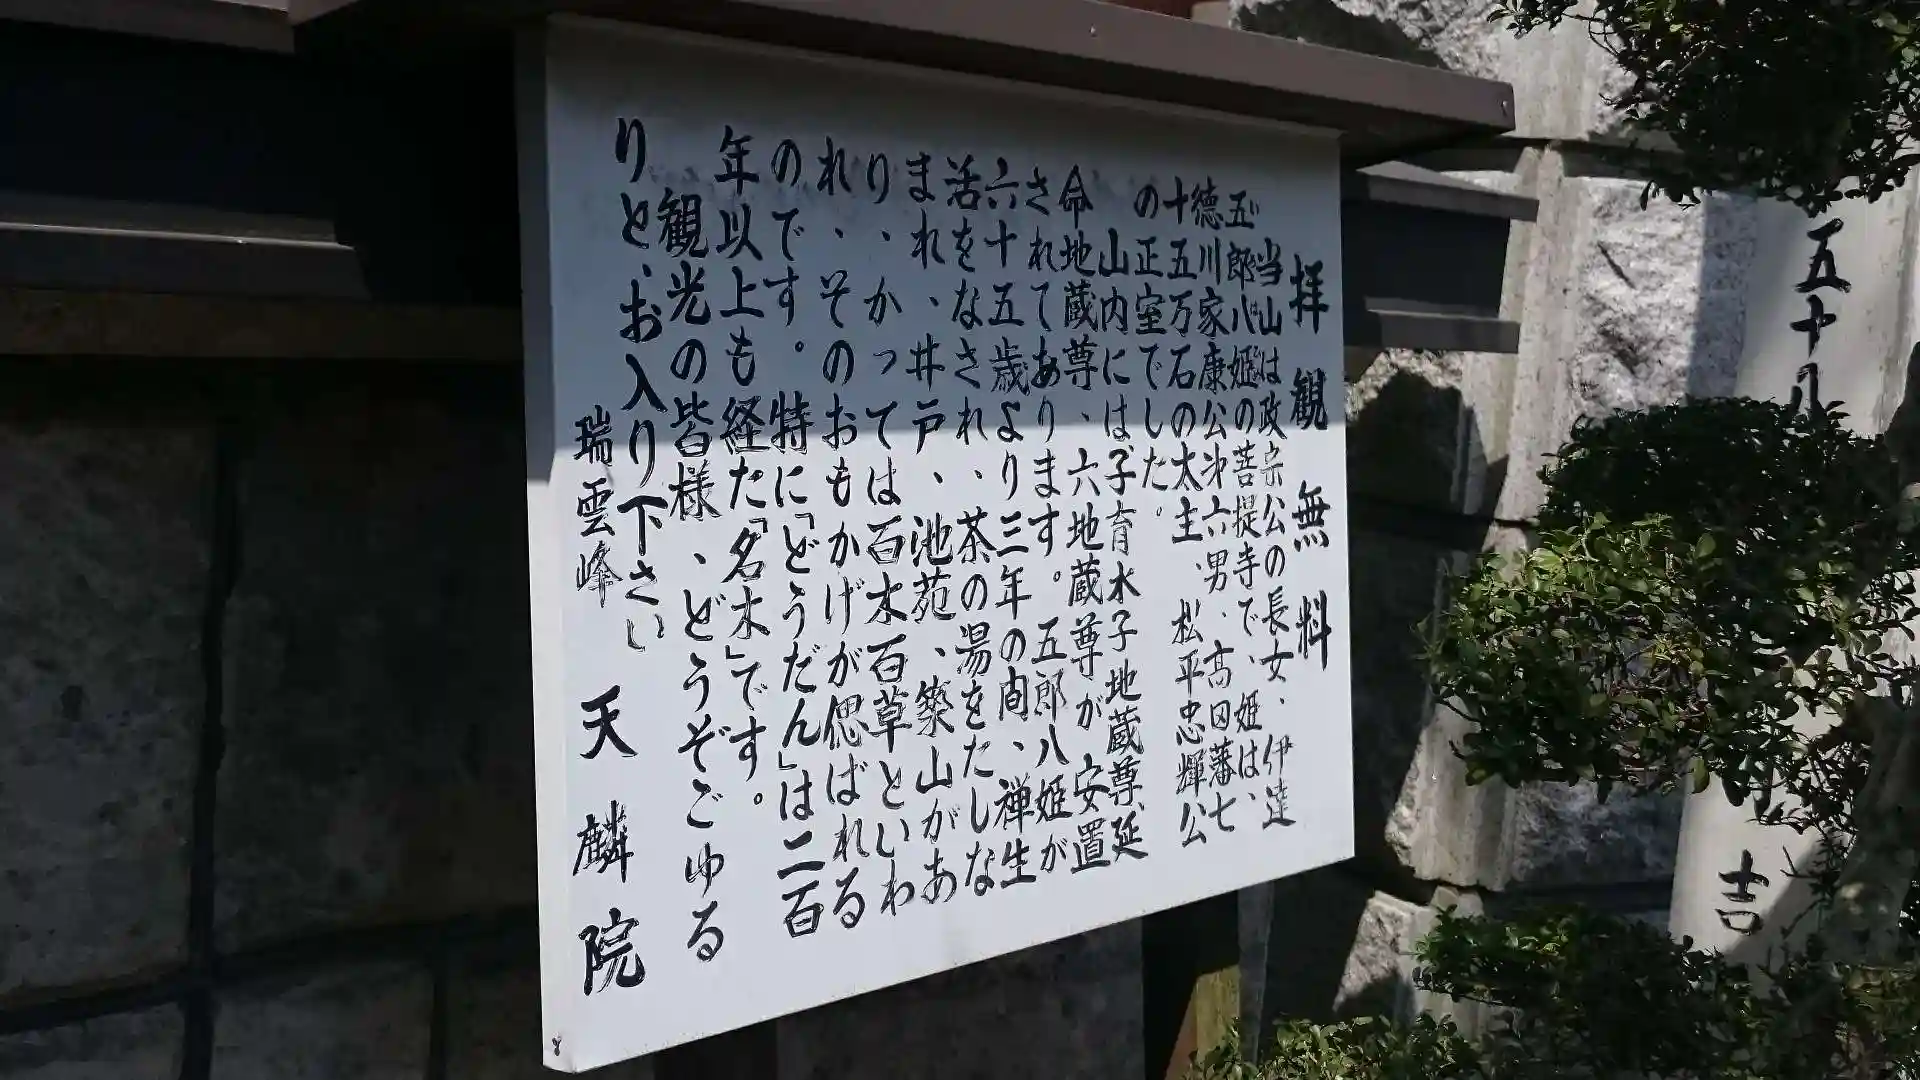 拝観無料
当山は政宗公の長女、伊達
五郎八姫の菩提寺で、姫は、
徳川家康公次六男、高田藩七
十五万石の太主、松平忠輝公
の正室でした。
山内には子育水子地蔵尊、延
命地蔵尊、六地蔵尊が、安置
されてあります。五郎八姫が
六十五歳より三年の間、禅生
活をなされ、茶の湯をたしな
まれ、井戸、池苑、築山があ
り、かっては百木百草といわ
れ、そのおもかげが偲ばれる
のです。特に「どうだん」は二百
年以上も経た「名木」です。
観光の皆様、どうぞごゆる
りと、お入り下さい
瑞雲峰 天麟院
五十八
吉